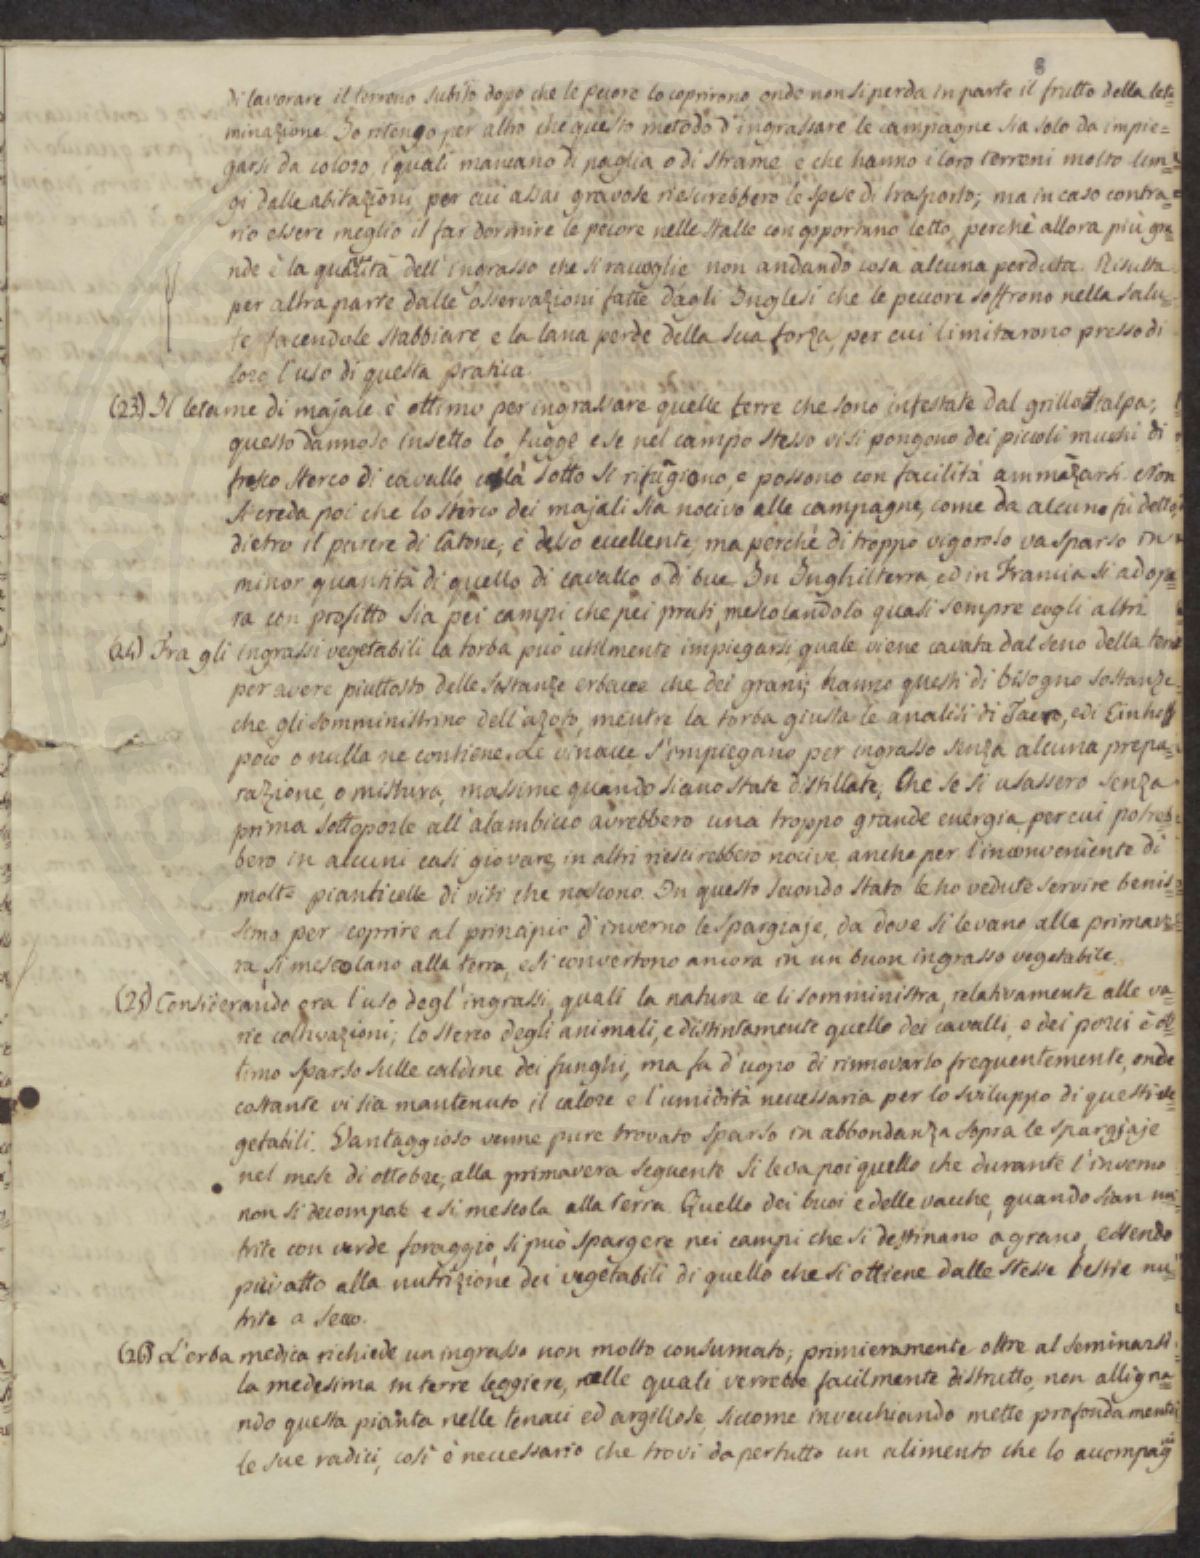 8
di lavorare il terreno subito dopo che le pecore lo coprirono onde non si perda in parte il frutto della lete=
minazione. Io ritengo per altro che questo metodo d'ingrassare le campagne sia solo da impie=
garsi da coloro, i quali mancano di paglia o di strame e che hanno i loro terreni molto lun=
gi dalle abitazioni, per cui assai gravose riescirebbero le spese di trasporto; ma in caso contra=
rio essere meglio il far dormire le pecore nelle stalle con opportuno letto, perchè allora più gra=
nde è la quantità dell'ingrasso che si raccoglie non andando cosa alcuna perduta. Risulta
per altra parte dalle osservazioni fatte dagli Inglesi che le peccore soffrono nella salu=
te facendole stabbiare e la lana perde della sua forza, per cui limitarono presso di
loro l'uso di questa pratica.
(23) Il letame di majale è ottimo per ingrassare quelle terre che sono infestate dal grillotalpa;
questo dannoso insetto lo fugge e se nel campo stesso vi si pongono dei piccoli mucchi di
fresco sterco di cavallo colà sotto si rifugiono, e possono con facilità ammazarsi. Non
si creda poi che lo sterco dei majali sia nocivo alle campagne, come da alcuno fù detto,
dietro il parere di Catone; è desso eccellente; ma perchè di troppo vigoroso va sparso in
minor quantità di quello di cavallo o di bue. In Inghilterra ed in Francia si adope=
ra con profitto sia pei campi che pei prati, mescolandolo quasi sempre cogli altri.
(24) Fra gli ingrassi vegetabili la torba può utilmente impiegarsi, quale viene cavata dal seno della terra
per avere piuttosto delle sostanze erbacee che dei grani; hanno questi di bisogno sostanze
che gli somministrino dell'azoto, mentre la torba giusta le analisi di Taero, e di Einhoff
poco o nulla ne contiene. Le vinacce s'impiegano per ingrasso senza alcuna prepa=
razione, o mistura, massime quando siano state distillate; Che se si usassero senza
prima sottoporle all'alambicco avrebbero una troppo grande energia, per cui potreb=
bero in alcuni casi giovare, in altri riescirebbero nocive anche per l'inconveniente di
molte pianticelle di viti che nascono. In questo secondo stato le ho vedute servire benis=
simo per coprire al principio d'inverno le spargiaje, da dove si levano alla primave=
ra, si mescolano alla terra, e si convertono ancora in un buon ingrasso vegetabile.
(25) Considerando ora l'uso degl'ingrassi, quali la natura ce li somministra, relativamente alle va=
rie coltivazioni; lo sterco degli animali, e distintamente quello dei cavalli, e dei porci è ot=
timo sparso sulle caldine dei funghi, ma fa d'uopo di rinnovarlo frequentemente, onde
costante vi sia mantenuto il calore e l'umidità necessaria per lo sviluppo di questi ve=
getabili. Vantaggioso venne pure trovato sparso in abbondanza sopra le spargiaje
nel mese di ottobre; alla primavera seguente si leva poi quello che durante l'inverno
non si decompose e si mescola alla terra. Quello dei buoi e delle vacche, quando sian nu=
trite con verde foraggio, si può spargere nei campi che si destinano a grano, essendo
più atto alla nutrizione dei vegetabili di quello che si ottiene dalle stesse bestie nu=
trite a secco.
(26) L'erba medica richiede un ingrasso non molto consumato; primieramente oltre al seminarsi
la medesima in terre leggiere, nelle quali verrebbe facilmente distrutto, non alligna=
ndo questa pianta nelle tenaci ed argillose, siccome invecchiando mette profondamente
le sue radici, così è necessario che trovi dapertutto un alimento che lo accompag